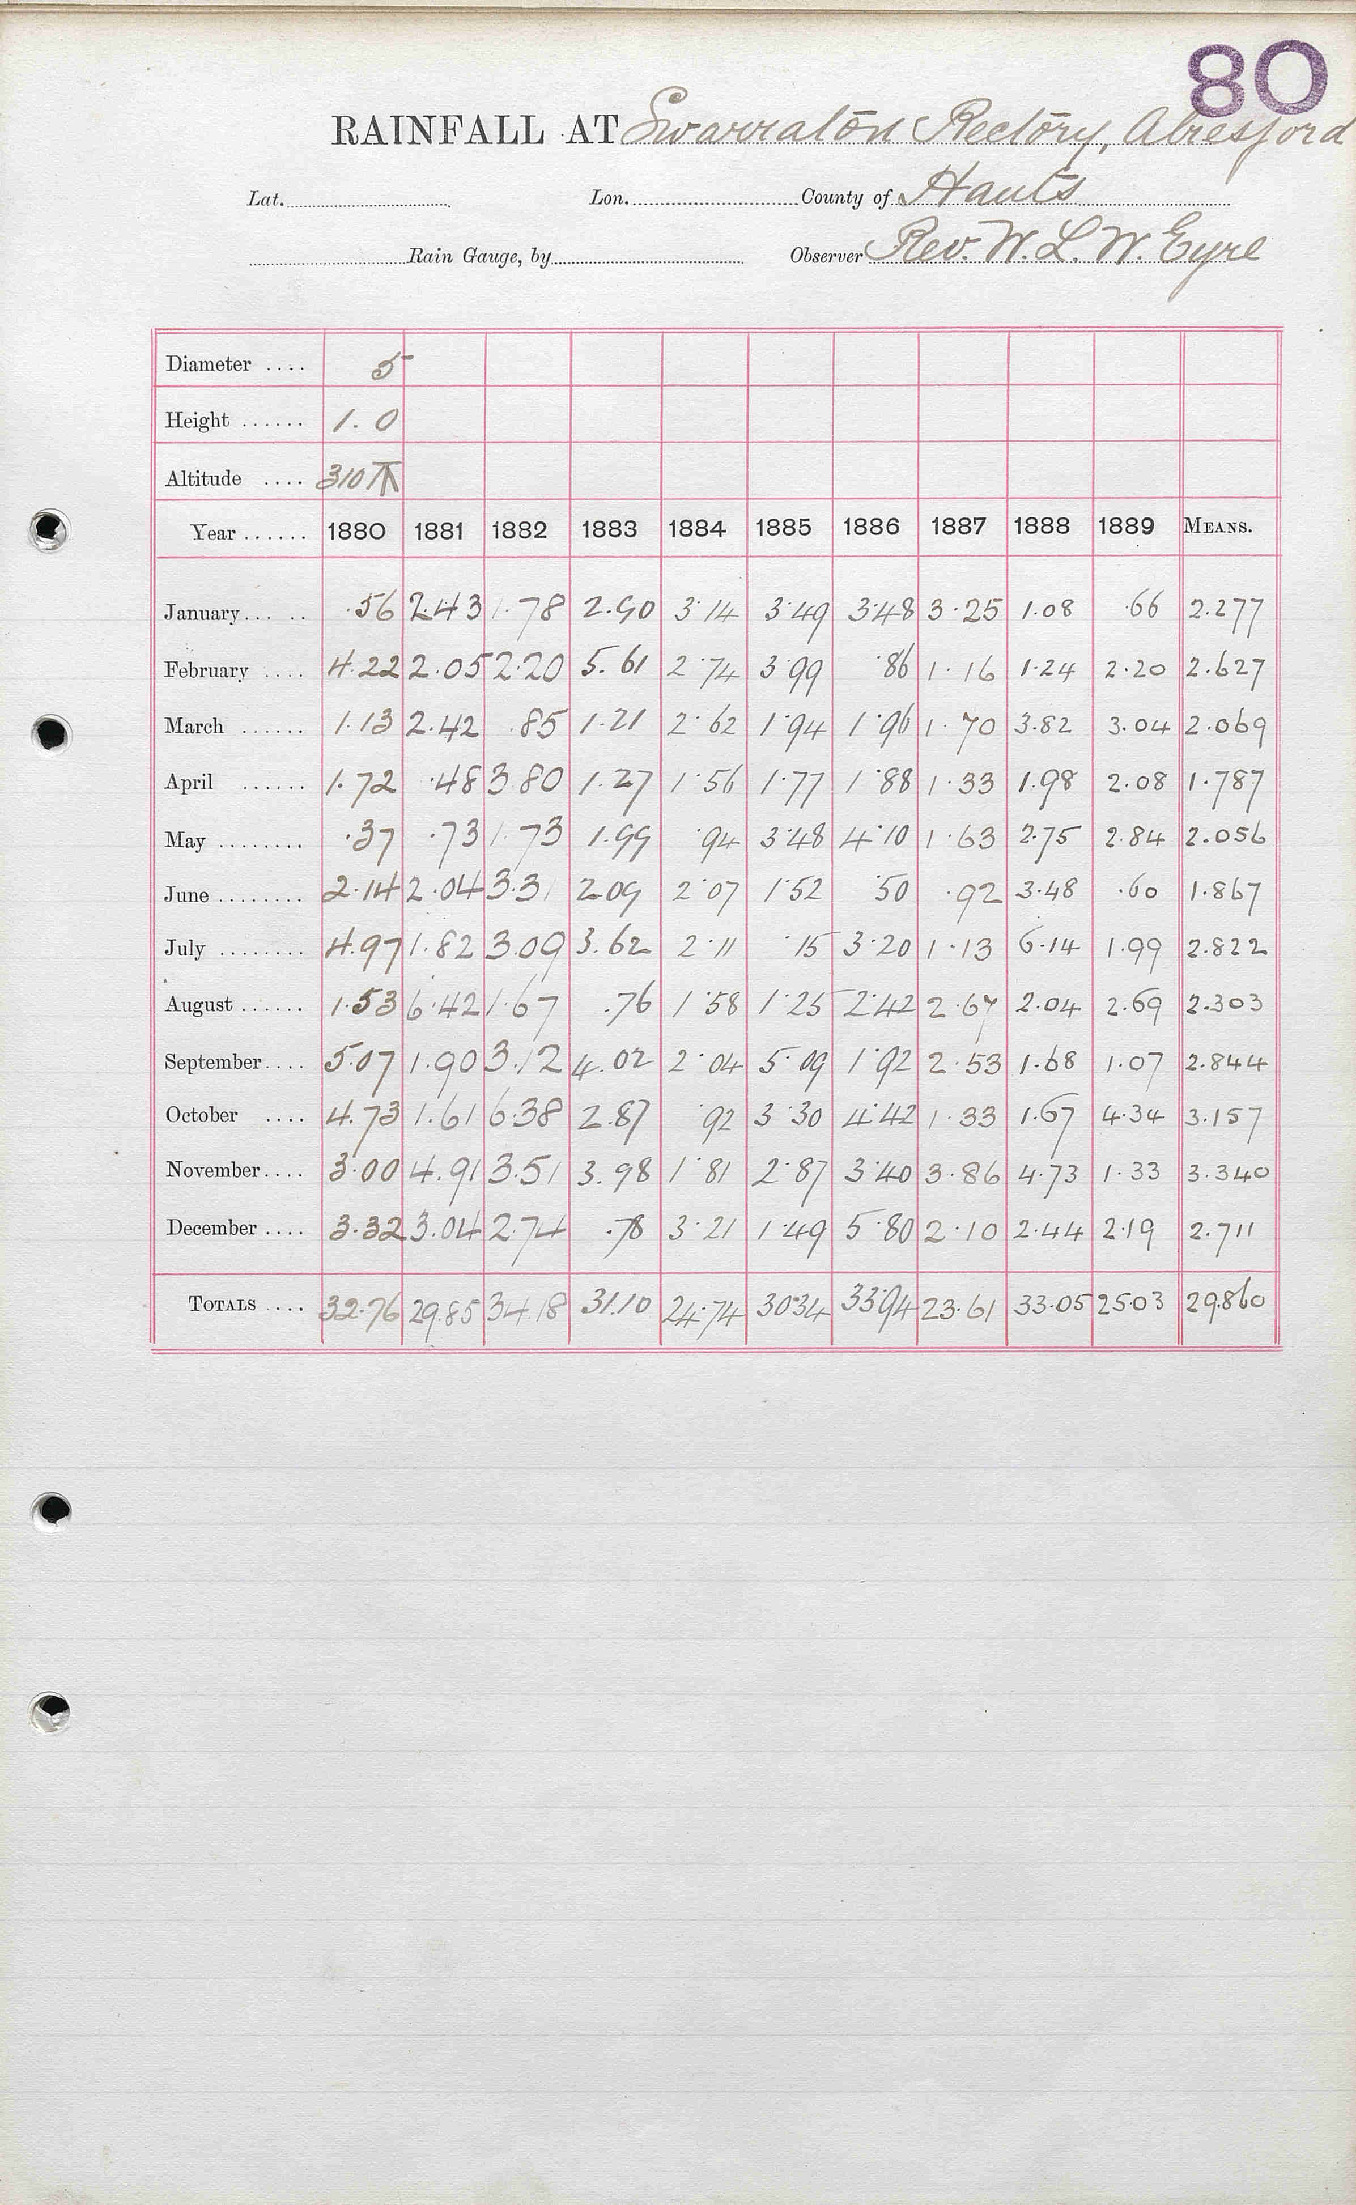 80
RAINFALL AT Swarraton Rectory, Alresford
Lat. Lon. County of Hants
Rain Gauge, by Observer Rev. W. L. W. Eyre
Diameter .... 5
Height ...... 1.0
Altitude .... 310
Year ...... 1880 1881 1882 1883 1884 1885 1886 1887 1888 1889 MEANS.
January ... .. .56 2.43 1.78 2.90 3.14 3.49 3.48 3.25 1.08 .66 2.277
February .... 4.22 2.05 2.20 5.61 2.74 3.99 .86 1.16 1.24 2.20 2.627
March ...... 1.13 2.42 .85 1.21 2.62 1.94 1.96 1.70 3.82 3.04 2.069
April ...... 1.72 .48 3.80 1.27 1.56 1.77 1.88 1.33 1.98 2.08 1.787
May ........ .37 .73 1.73 1.99 .94 3.48 4.10 1.63 2.75 2.84 2.056
June ........ 2.14 2.04 3.31 2.09 2.07 1.52 .50 .92 3.48 .60 1.867
July ........ 4.97 1.82 3.09 3.62 2.11 .15 3.20 1.13 6.14 1.99 2.822
August ...... 1.53 6.42 1.67 .76 1.58 1.25 2.42 2.67 2.04 2.69 2.303
September .... 5.07 1.90 3.12 4.02 2.04 5.09 1.92 2.53 1.68 1.07 2.844
October .... 4.73 1.61 6.38 2.87 .92 3.30 4.42 1.33 1.67 4.34 3.157
November .... 3.00 4.91 3.51 3.98 1.81 2.87 3.40 3.86 4.73 1.33 3.340
December .... 3.32 3.04 2.74 .78 3.21 1.49 5.80 2.10 2.44 2.19 2.711
TOTALS .... 32.76 29.85 34.18 31.10 24.74 30.34 33.94 23.61 33.05 25.03 29.860